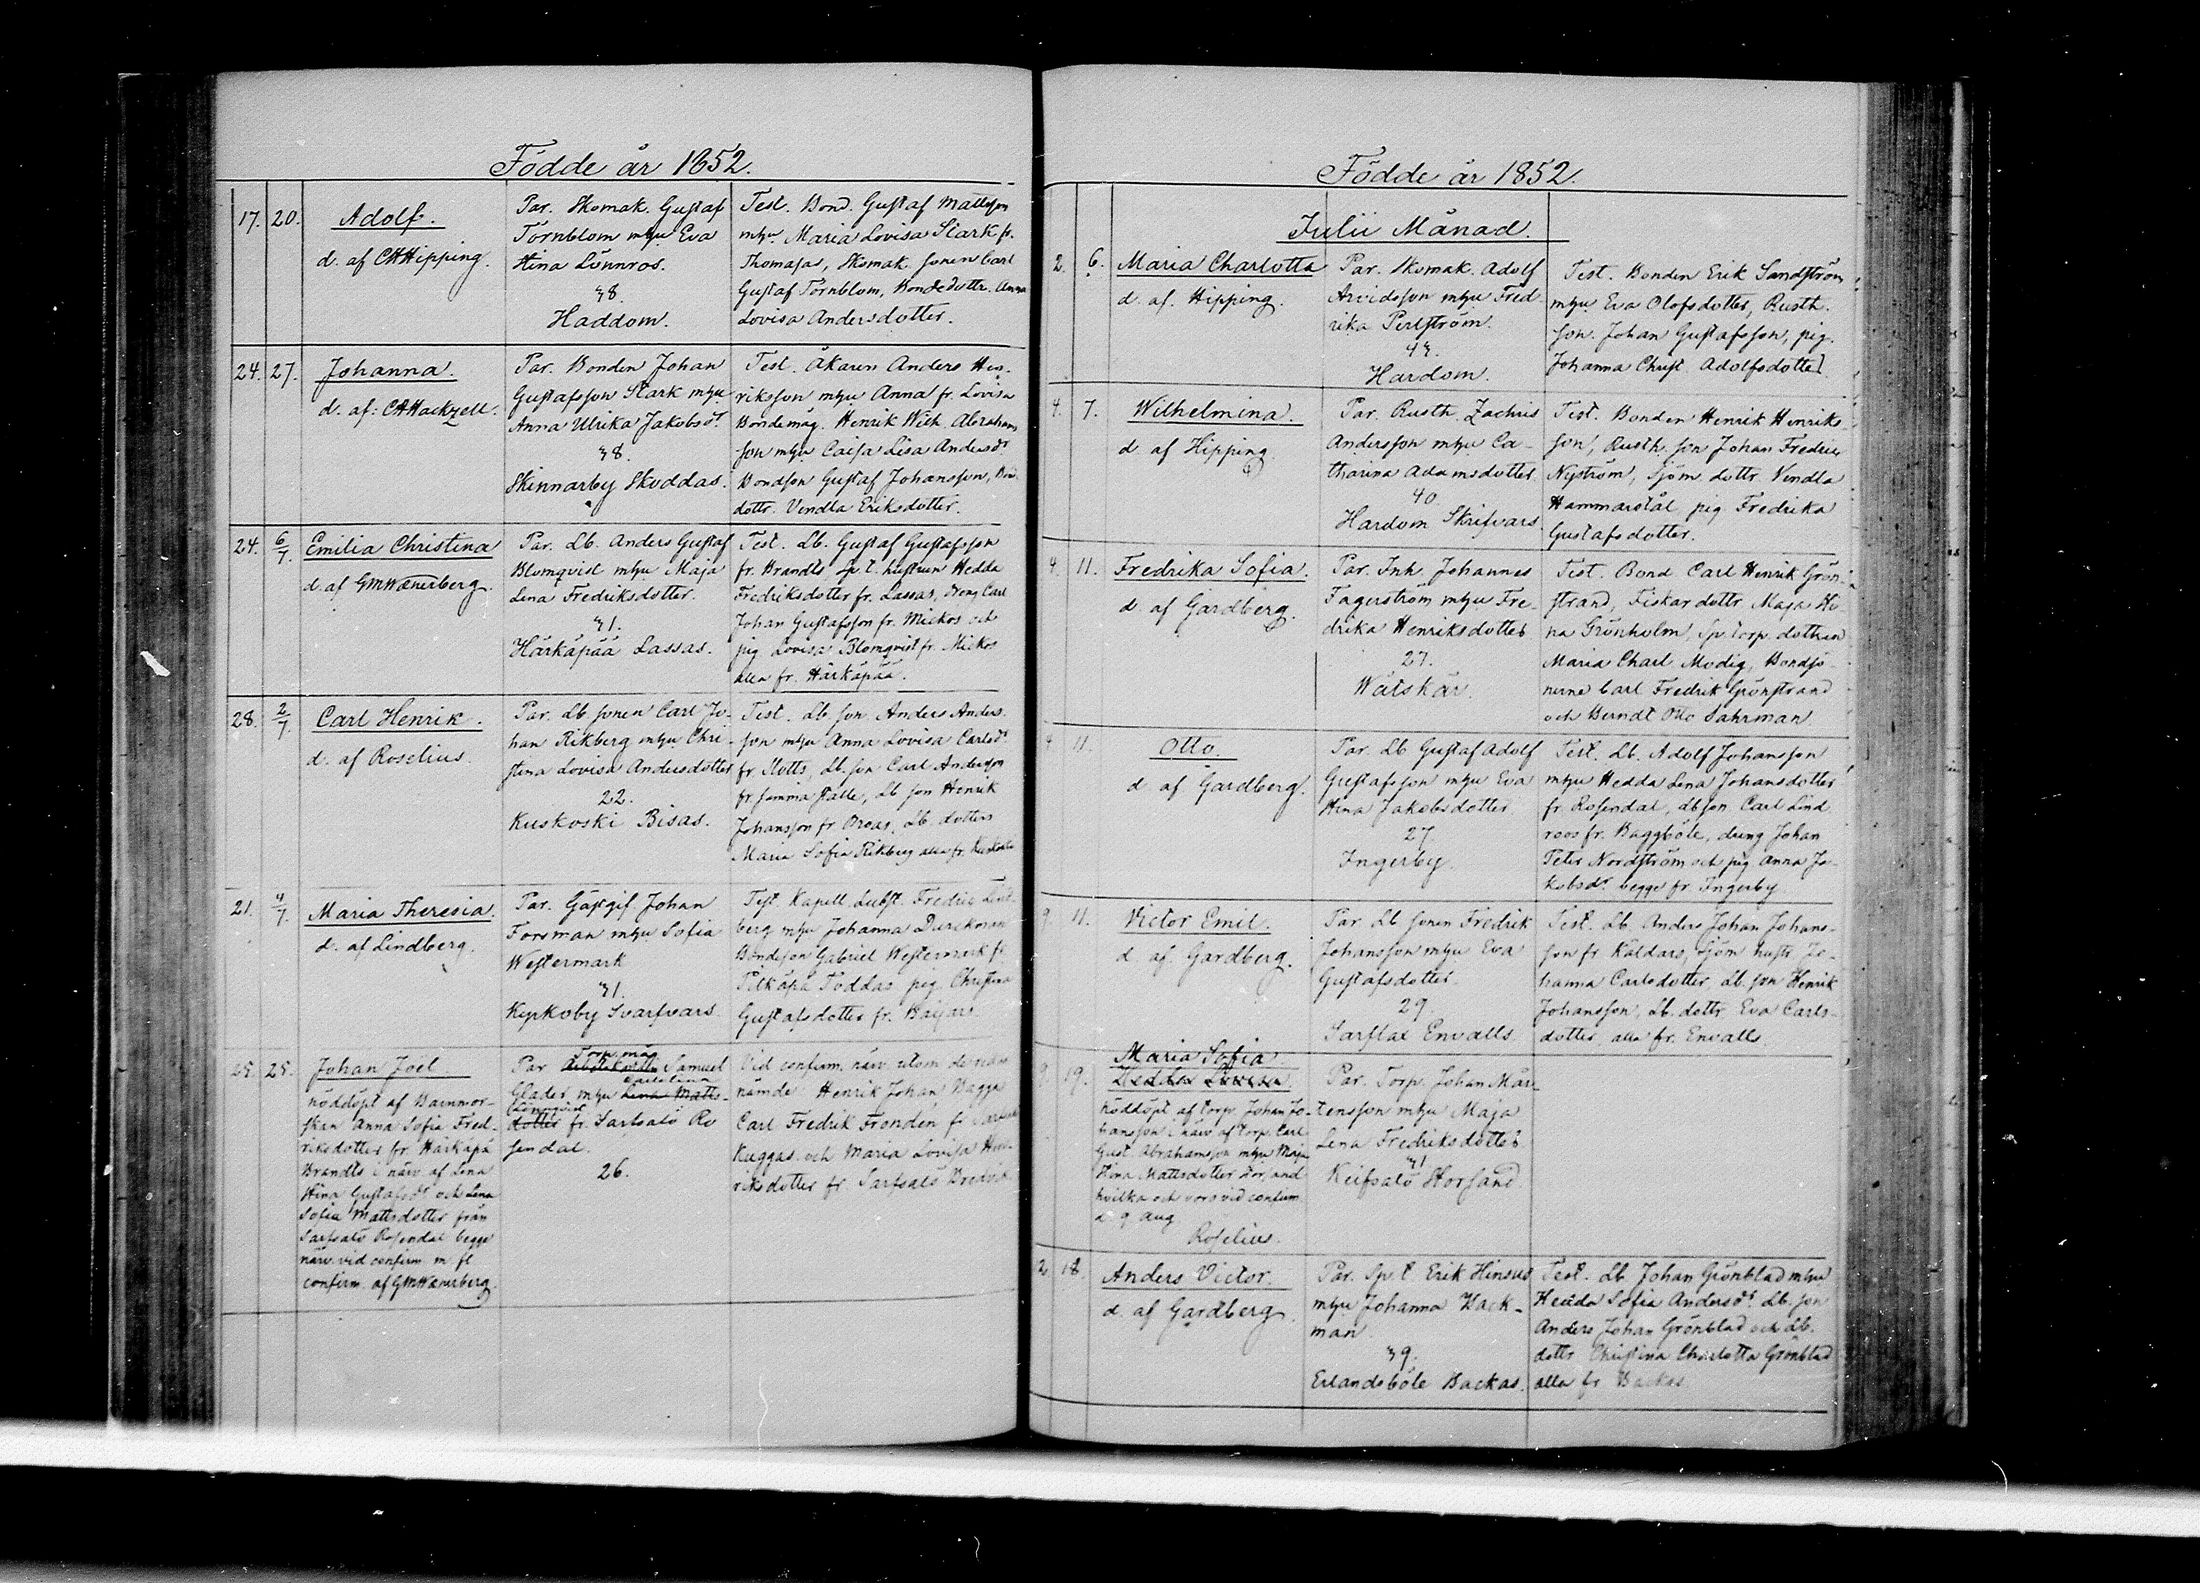 Födde år 1852.
17. 20. Adolf.
d. af CHHipping.
Par. Skomak. Gustaf
Törnblom mhu Eva
Stina Lönnros.
38.
Haddom.
Test. Bond. Gustaf Mattsson
mhu. Maria Lovisa Stark fr.
Thomasas, Skomak. sonen Carl
Gustaf Törnblom, Bondedottr. Anna
Lovisa Andersdotter.
24. 27. Johanna.
d. af: CHHackzell.
Par. Bonden Johan
Gustafsson Stark mhu
Anna Ulrika Jakobsdr
38.
Skinnarby Skoddas.
Test. Åkaren Anders Hen-
riksson mhu Anna fr. Lovisa
Bondemåg. Henrik Wilh. Abrahams
son mhu Caisa Lisa Andersdr
Bondson Gustaf Johansson, Bond
dottr. Vendla Eriksdotter.
24. 6/7. Emilia Christina
d. af GMWænerberg.
Par. Lb. Anders Gustaf
Blomqvist mhu Maja
Lena Fredriksdotter.
31.
Härkäpää Lassas.
Test. Lb. Gustaf Gustafsson
fr. Brandts, Sp. t. hustrun Hedda
Fredriksdotter fr. Lassas, dreng Carl
Johan Gustafsson fr. Mickos och
pig Lovisa Blomqvist fr. Mickos
alla fr. Härkäpää.
28. 2/7. Carl Henrik.
d. af Roselius.
Par. Lb sonen Carl Jo-
han Rikberg mhu Chri-
stina Lovisa Andersdotter
22.
Kuskoski Bisas.
Test. Lb. son Anders Anders-
son mhu Anna Lovisa Carlsdr
fr. Motts, Lb. son Carl Andersson
fr. samma ställe, Lb son Henrik
Johansson fr Oroas, Lb. dottern
Maria Sofia Rikberg alla fr. Kuskoski
21. 4/7. Maria Theresia.
d. af Lindberg.
Par. Gästgif Johan
Forsman mhu Sofia
Westermark
31.
Kyrkoby Svarfvars
Test. Kapell. Subst. Fredric Lind
berg mhu Johanna Durchman
Bondeson Gabriel Westermark fr
Pitkäpä Toddas pig. Christina
Gustafsdotter fr. Baijars
25. 25. Johan Joel
nöddöpt af Barnmor-
skan Anna Sofia Fred-
riksdotter fr. Härkäpä
Brandts i närv af Lena
Stina Gustafsdr och Lena
Sofia Mattsdotter från
Sarfsalö Rosendal begge
närv. vid confirm. m fl
confirm. af GMWænerberg
Torp. måg
Par Arbetskarlen Samuel
Carolina
Glader mhu Lena Matts-
Lönqvist
dotter fr. Sarfsalö Ro
sendal.
26.
Vid confirm. närv. utom de redan
nämde Henrik Johan Bagge
Carl Fredrik Frondén fr Sarfsalö
Kuggas och Maria Lovisa Hen-
riksdotter fr. Sarfsalö Bredvik
Födde år 1852.
Julii Månad.
2. 6. Maria Charlotta
d. af. Hipping.
Par. Skomak. Adolf
Arvidsson mhu Fred-
rika Perlström.
43.
Hardom.
Test. Bonden Erik Sandström
mhu Eva Olofsdotter, Rusth.
son. Johan Gustafsson, pig.
Johanna Christ. Adolfsdotter
4. 7. Wilhelmina.
d af Hipping
Par. Rusth. Zachris
Andersson mhu Ca-
tharina Adamsdotter
40
Hardom Skrifvars.
Test. Bonden Henrik Henriks
son, Rusth. son Johan Fredric
Nyström, Sjöm dottr. Vendla
Hammarstål pig Fredrika
Gustafsdotter.
4. 11. Fredrika Sofia.
d af Gardberg.
Par. Inh. Johannes
Fagerström mhu Fre-
drika Henriksdotter
27.
Wåtskär.
Test. Bond Carl Henrik Grön-
strand, Fiskar dottr Maja He-
na Grönholm, Sp. torp. dottren
Maria Charl. Modig, Bondsö-
nerne Carl Fredrik Grönstrand
och Berndt Otto Sahrman
9. 11. Otto.
d af Gardberg.
Par. Lb Gustaf Adolf
Gustafsson mhu Eva
Stina Jakobsdotter
27
Ingerby.
Test. Lb. Adolf Johansson
mhu Hedda Lena Johansdotter
fr. Rosendal, Lb son Carl Lind
roos fr. Baggböle, dreng Johan
Peter Nordström och pig Anna Ja-
kobsdr begge fr Ingerby
9 11. Victor Emil.
d. af Gardberg.
Par Lb sonen Fredrik
Johansson mhu Eva
Gustafsdotter.
29
Sarflax Envalls
Test. Lb. Anders Johan Johans-
son fr Käldars, Sjöm hustr Jo-
hanna Carlsdotter Lb. son Henrik
Johansson, Lb. dottr Eva Carls-
dotter alla fr. Envalls.
Maria Sofia
9 19. Hedda Lovisa
nöddöpt af torp. Johan Jo-
hansson i närv af torp. Carl
Gust. Abrahamsson mhu Maja
Stina Mattsdotter Horsand
hvilka och voro vid confirm
d. 9 Aug
Roselius.
Par. Torp. Johan Mår-
tensson mhu Maja
Lena Fredriksdotter
31
Keifsalö Horsand
12 18. Anders Victor.
d. af Gardberg.
Par. Sp. t. Erik Hinsus
mhu Johanna Back-
man.
39.
Erlandsböle Backas.
Test. Lb Johan Grönblad mhu
Hedda Sofia Andersdr. Lb. son
Anders Johan Grönblad och Lb.
dottr Christina Charlotta Grönblad
alla fr Backas